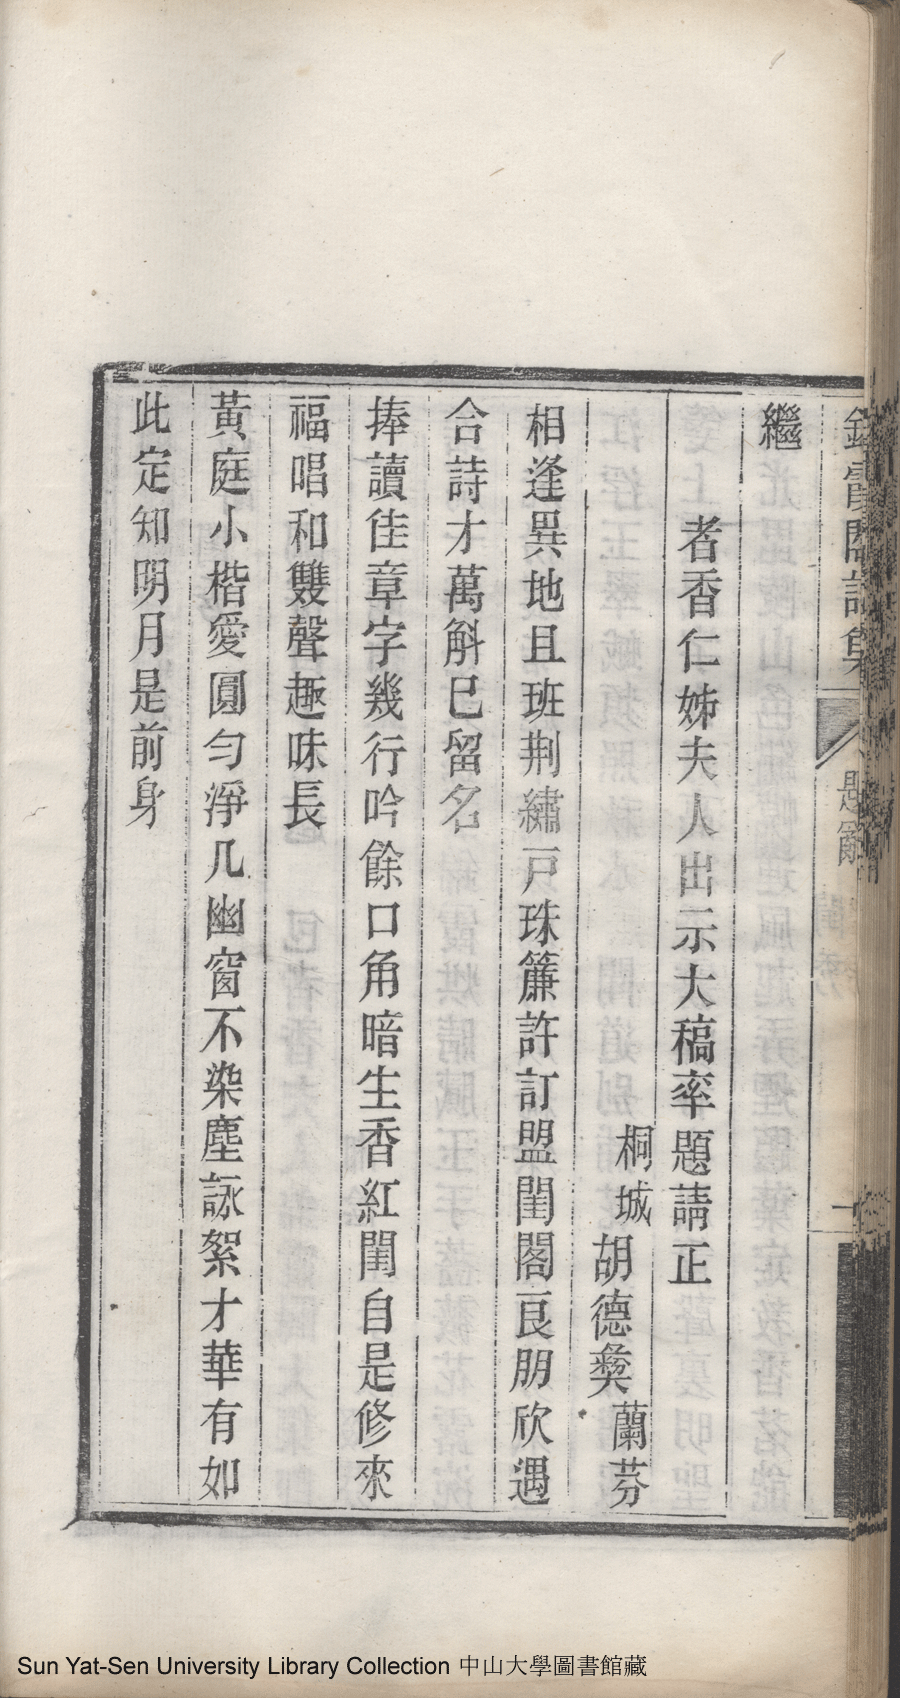 繼
者香仁姊夫人出示大稿率題請正
桐城胡德彝蘭芬
相逢異地且班荆繡戸珠簾許訂盟閨閣良朋欣遇
合詩才萬斛已留名
捧讀佳章字幾行吟餘口角暗生香紅閨自是修來
福唱和雙聲趣味長
黃庭小楷愛圓勻淨几幽窗不染塵詠絮才華有如
此定知明月是前身
Sun Yat-Sen University Library Collection 中山大學圖書館藏